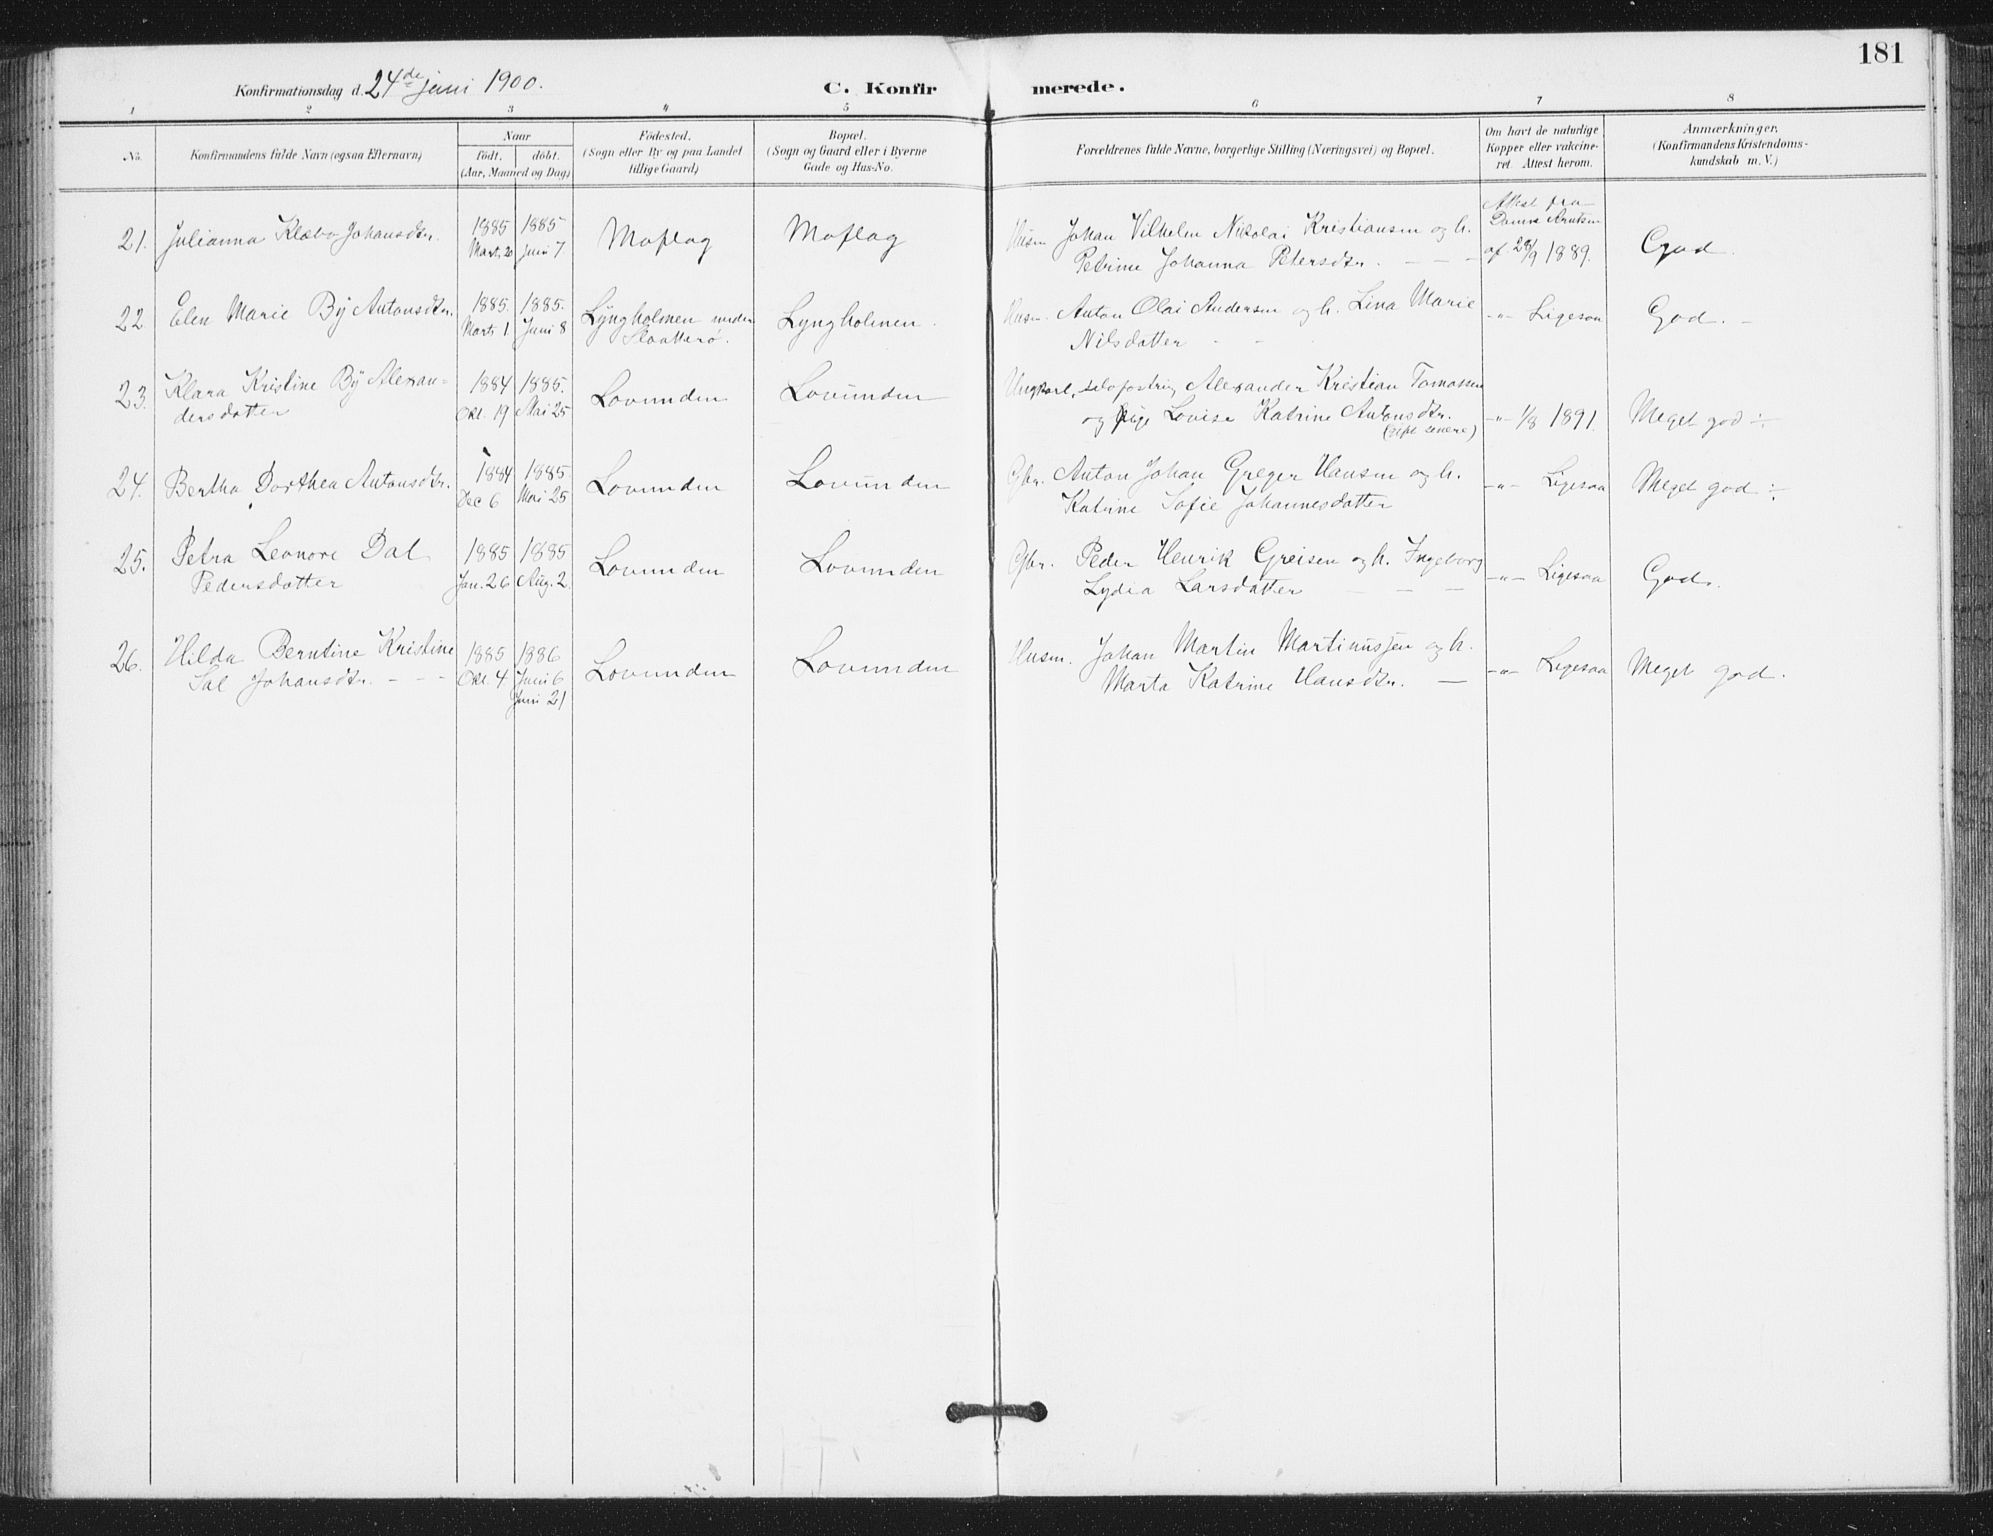 181
Konfirmationsdag d. 24de juni 1900.
C. Konfirmerede.
1 2 3 4 5 6 7 8
No.
Konfirmandens fulde Navn (ogsaa Efternavn)
Naar
födt. döbt.
(Aar, Maaned og Dag)
Födested.
(Sogn eller By og paa Landet
tillige Gaard)
Bopæl.
(Sogn og Gaard eller i Byerne
Gade og Hus-No.
Forældrenes fulde Navne, borgerlige Stilling (Næringsvei) og Bopæl.
Om havt de naturlige
Kopper eller vakcine-
ret. Attest herom.
Anmærkninger.
(Konfirmandens Kristendoms-
kundskab m. V.)
21. Julianna Klæbo Johansdtr.
1885 Marts 20
1885 Juni 7
Moflag
Moflag
Husm Johan Vilhelm Nikolai Kristiansen og h.
Petrine Johanna Petersdtr. - - -
Attest fra
Knutsen
af 29/9 1889.
God.
22 Elen Marie Bÿ Antonsdtr.
1885. Marts 1
1885. Juni 8
Lyngholmen under
Slaatterø.
Lyngholmen.
Husm. Anton Olai Andersen og h. Lina Marie
Nilsdatter - -
-"- Ligesaa
God. -
23. Klara Kristine Bÿ Alexan=
dersdatter
1884 Okt. 19
1885. Mai 25
Lovunden
Lovunden
Ungkarl, Alexander Kristian Tomassen
og Pige Lovise Katrine Antonsdtr.
(gift senere)
-"- 1/8 1891.
Meget god ÷
24. Bertha Dorthea Antonsdtr.
1884 Dec 6
1885 Mai 25
Lovunden
Lovunden
Gbr. Anton Johan Greger Hansen og h.
Katrine Sofie Johannesdatter
-"- Ligesaa
Meget god ÷
25. Petra Leonore Dal
Pedersdatter
1885 Jan. 26
1885 Aug. 2
Lovunden
Lovunden
Gbr. Peder Henrik Greisen og h. Ingeborg
Lydia Larsdatter - - -
-"- Ligesaa
God.
26. Hilda Berntine Kristine
Sal Johansdtr. - - -
1885 Okt. 4
1886 Juni 6
Juni 21
Lovunden
Lovunden
Husm. Johan Martin Martinussen og h.
Marta Katrine Hansdtr. -
-"- Ligesaa
Meget god.